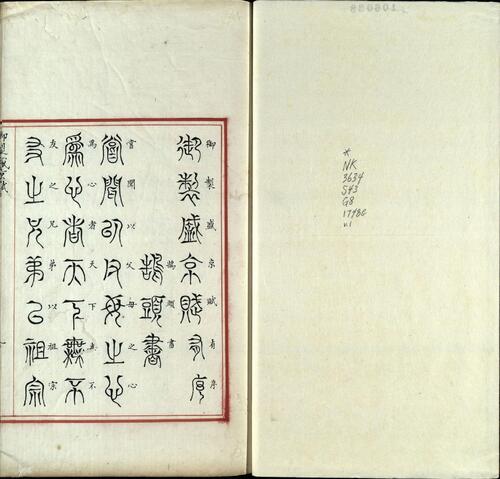 御製盛京賦有序
御製盛京賦有序
鵠頭書
鵠頭書
嘗聞以父母之心
嘗聞以父母之心
為心者天下無不
為心者天下無不
友之兄弟以祖宗
友之兄弟以祖宗
御製盛京賦
*
NK
3634
S43
G8
v.1